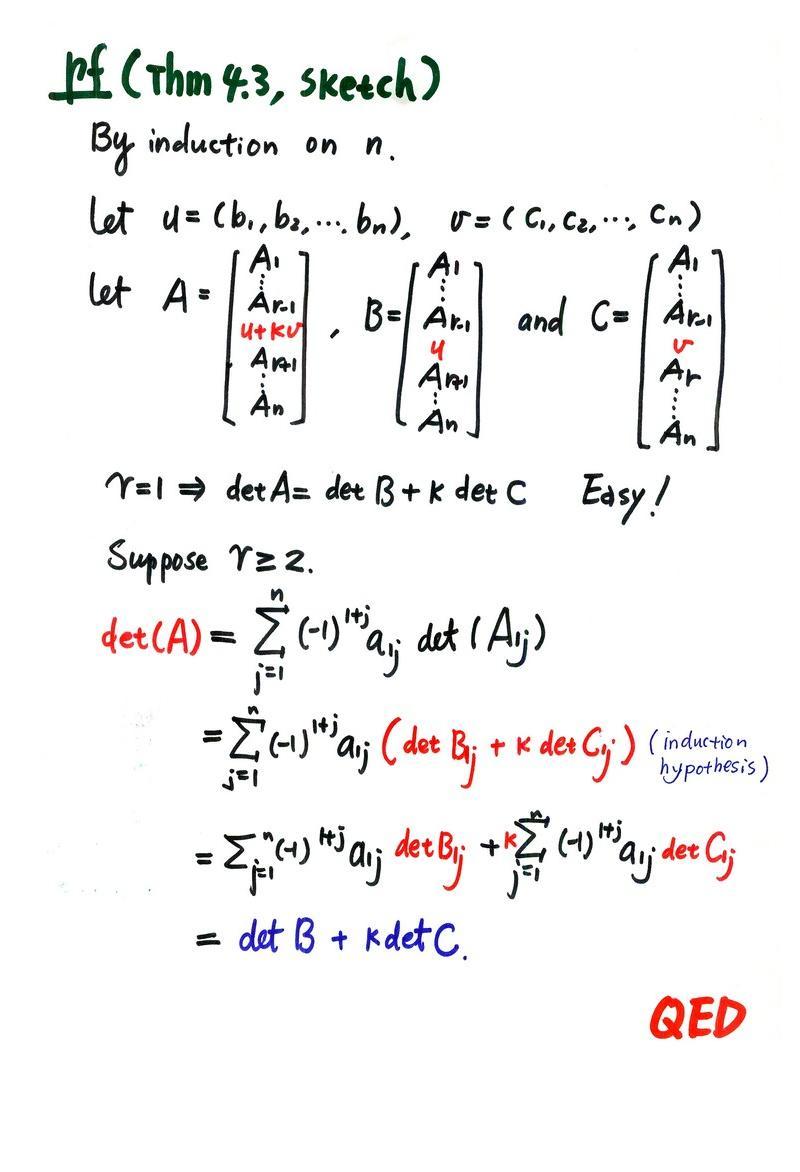 pf (Thm 4.3, sketch)
By induction on n.
Let u = (b₁, b₂, ... bₙ), v = (c₁, c₂, ..., cₙ)
let A = [A₁ ⋮ Aᵣ₋₁ u+kv Aᵣ₊₁ ⋮ Aₙ], B = [A₁ ⋮ Aᵣ₋₁ u Aᵣ₊₁ ⋮ Aₙ] and C = [A₁ ⋮ Aᵣ₋₁ v Aᵣ ⋮ Aₙ]
r=1 ⇒ det A = det B + k det C Easy!
Suppose r ≥ 2.
det(A) = Σ_{j=1}^{n} (-1)^{1+j} a_{1j} det(A_{1j})
= Σ_{j=1}^{n} (-1)^{1+j} a_{1j} (det B_{1j} + k det C_{1j}) (induction
hypothesis)
= Σ_{j=1}^{n} (-1)^{1+j} a_{1j} det B_{1j} + k Σ_{j=1}^{n} (-1)^{1+j} a_{1j} det C_{1j}
= det B + k det C.
QED